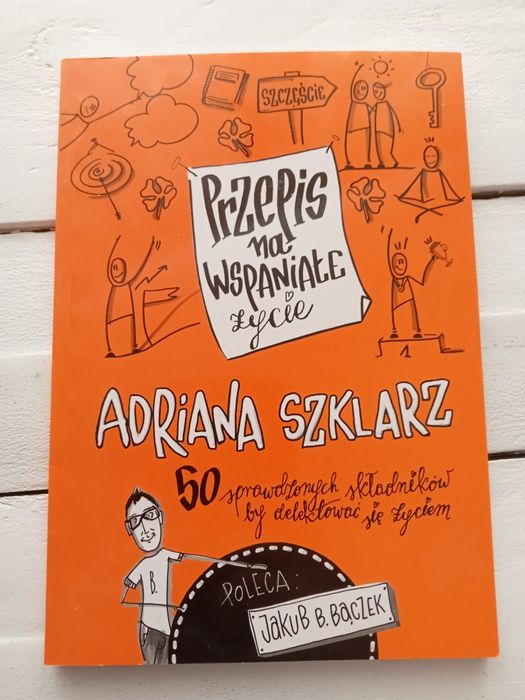 SZCZĘŚCIE
PRZEPIS
na
WSPANIAŁE
życie
1
ADRIANA SZKLARZ
50 sprawdzonych składników
by delektować się życiem
B.
POLECA:
JAKUB B. BĄCZEK